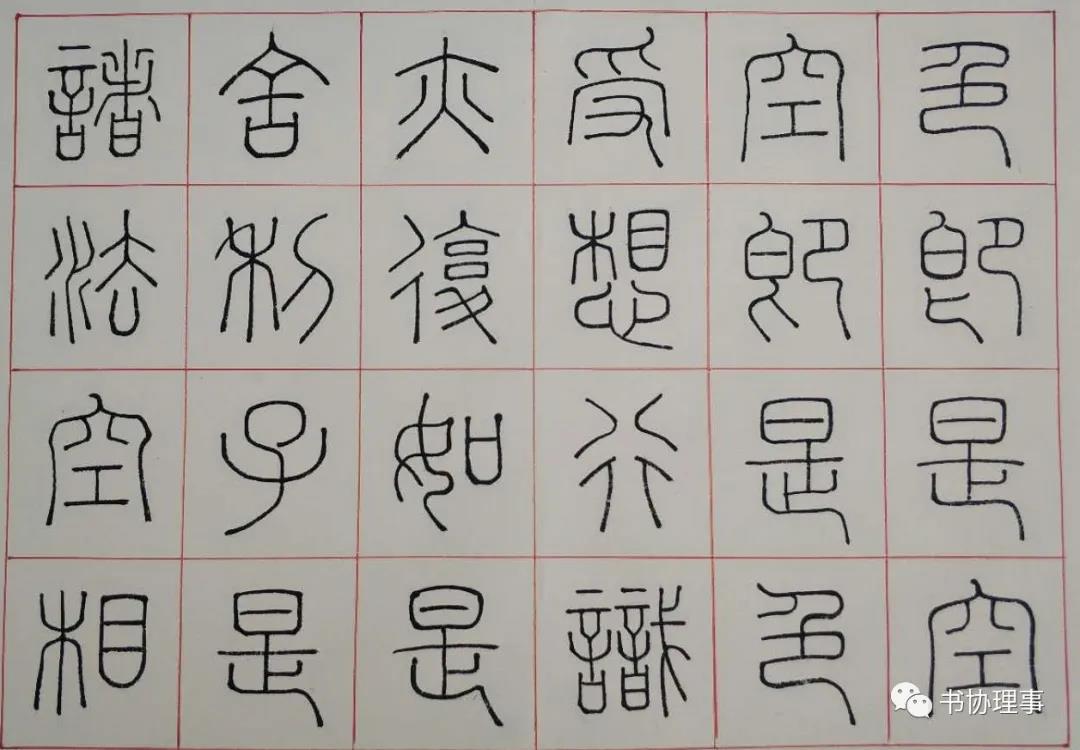 色即是空
空即是色
受想行識
亦復如是
舍利子是
諸法空相
书协理事